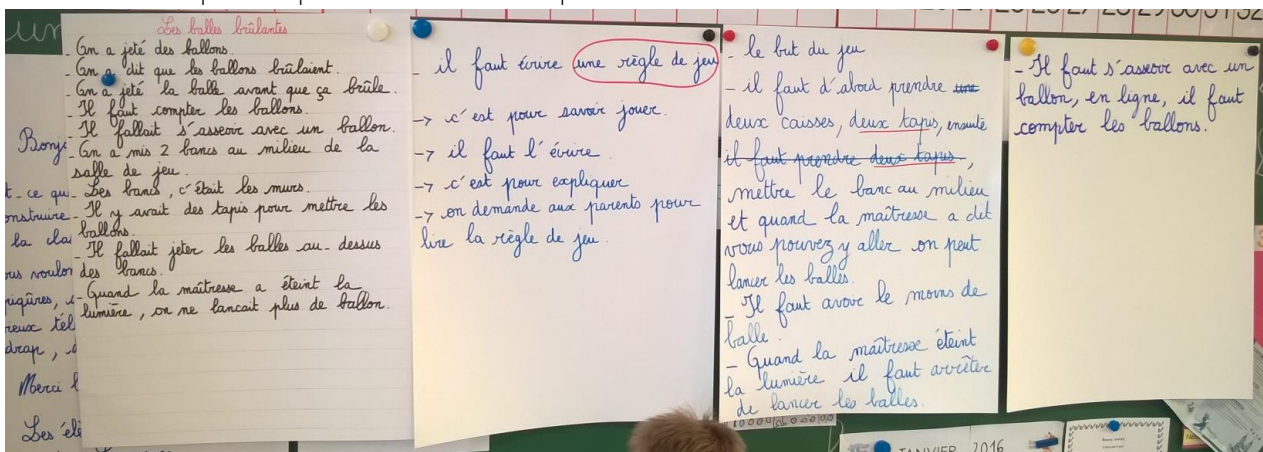 Les balles brûlantes
- On a jeté des ballons.
- On a dit que les ballons brûlaient.
- On a jeté la balle avant que ça brûle.
- Il faut compter les ballons.
- Il fallait s'asseoir avec un ballon.
- On a mis 2 bancs au milieu de la
salle de jeu.
- Les bancs, c'était les murs.
- Il y avait des tapis pour mettre les
ballons.
- Il fallait jeter les balles au-dessus
des bancs.
- Quand la maîtresse a éteint la
lumière, on ne lancait plus de ballon.
- il faut écrire une règle de jeu
-> c'est pour savoir jouer.
-> il faut l'écrire.
-> c'est pour expliquer
-> on demande aux parents pour
lire la règle de jeu.
- le but du jeu
- il faut d'abord prendre une
deux caisses, deux tapis, ensuite
il faut prendre deux tapis,
mettre le banc au milieu
et quand la maîtresse a dit
vous pouvez y aller on peut
lancer les balles.
- Il faut avoir le moins de
balle.
- Quand la maîtresse éteint
la lumière il faut arrêter
de lancer les balles.
- Il faut s'asseoir avec un
ballon, en ligne, il faut
compter les ballons.
un
Bonj
t-ce qu
onstruire
la cla
ous voulon
drap,
Merci
Les élè
26 27 28 29 30 31 32
JANVIER 2016